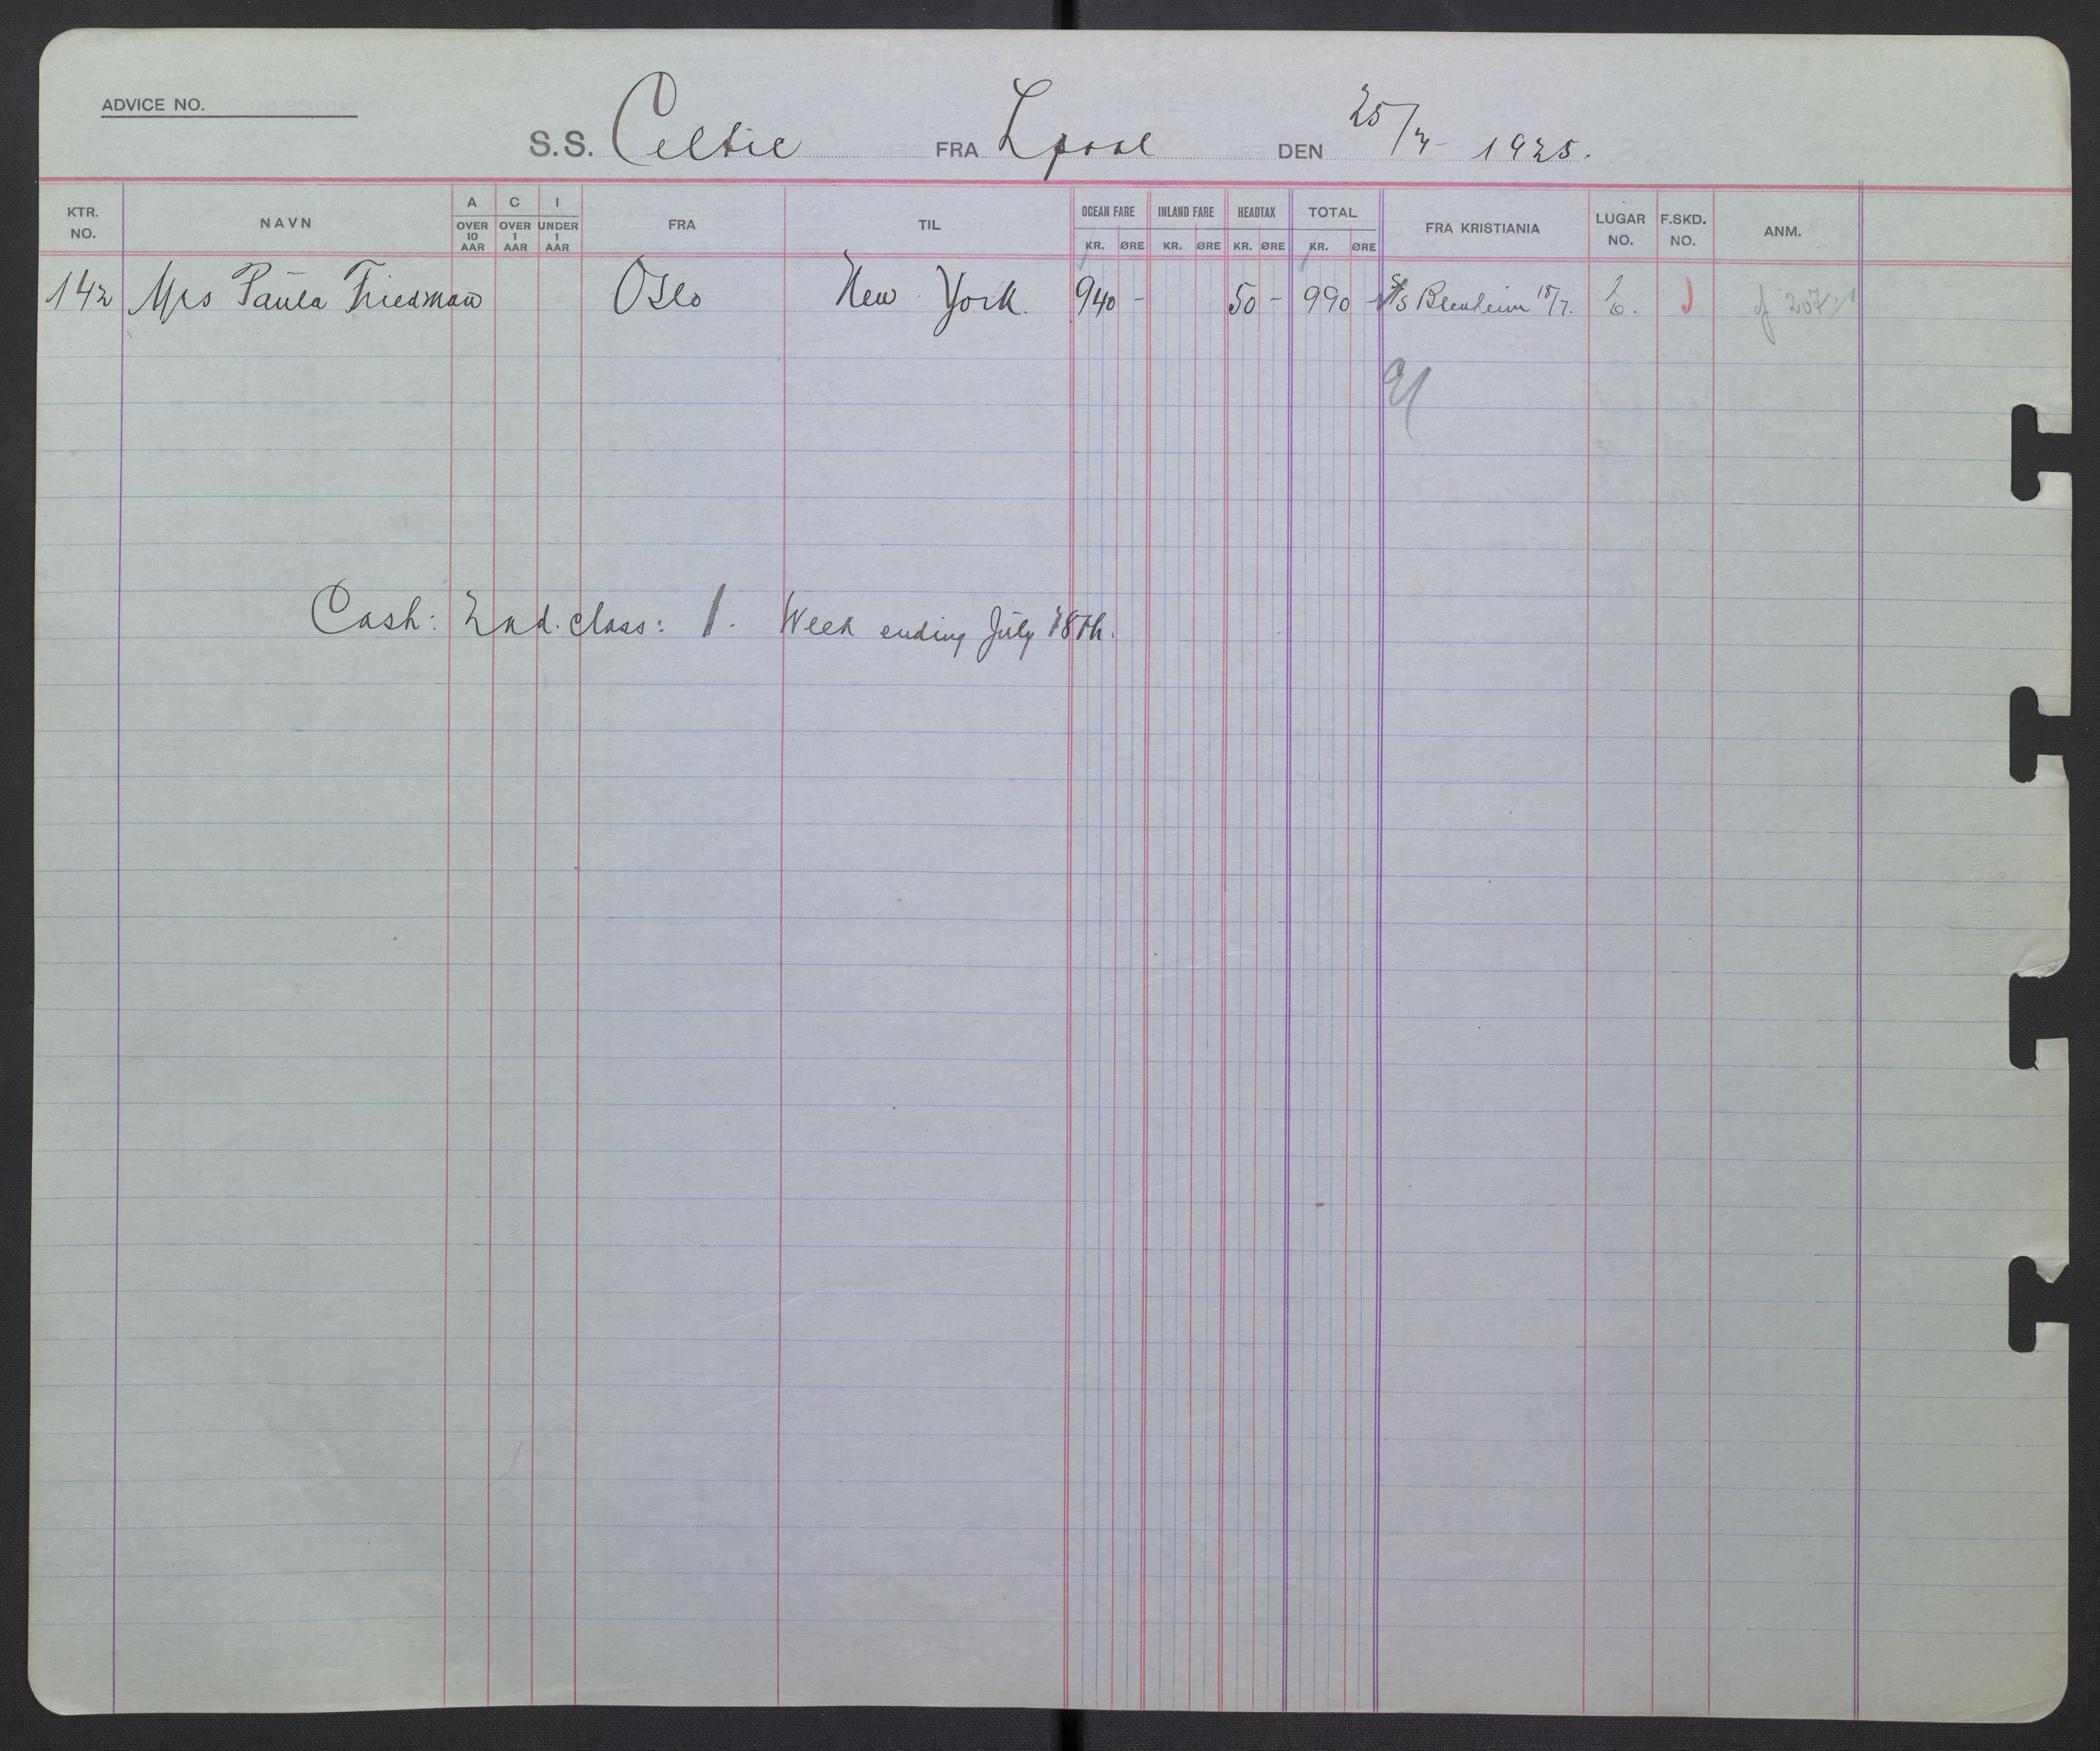 ADVICE NO.
S.S. Celtic FRA Lpool DEN 25/7- 1925.
KTR. NO. NAVN A OVER 10 AAR C OVER 1 AAR I UNDER 1 AAR FRA TIL OCEAN FARE KR. ØRE INLAND FARE KR. ØRE HEADTAX KR. ØRE TOTAL KR. ØRE FRA KRISTIANIA LUGAR NO. F.SKD. NO. ANM.
142 Mrs Paula Friedman Oslo New York. 940 - 50 - 990 - S/S Blenheim 18/7.
Cash: 2nd. class: 1. Week ending July 18th.